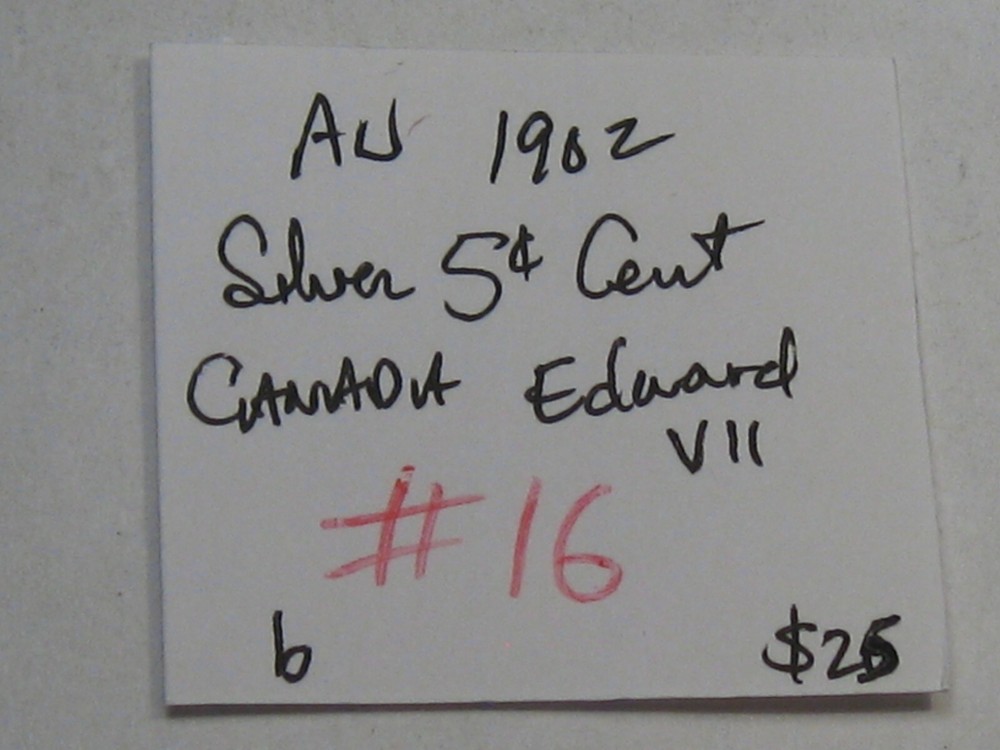 AU 1902
Silver 5¢ Cent
CANADA Edward
VII
#16
b $25